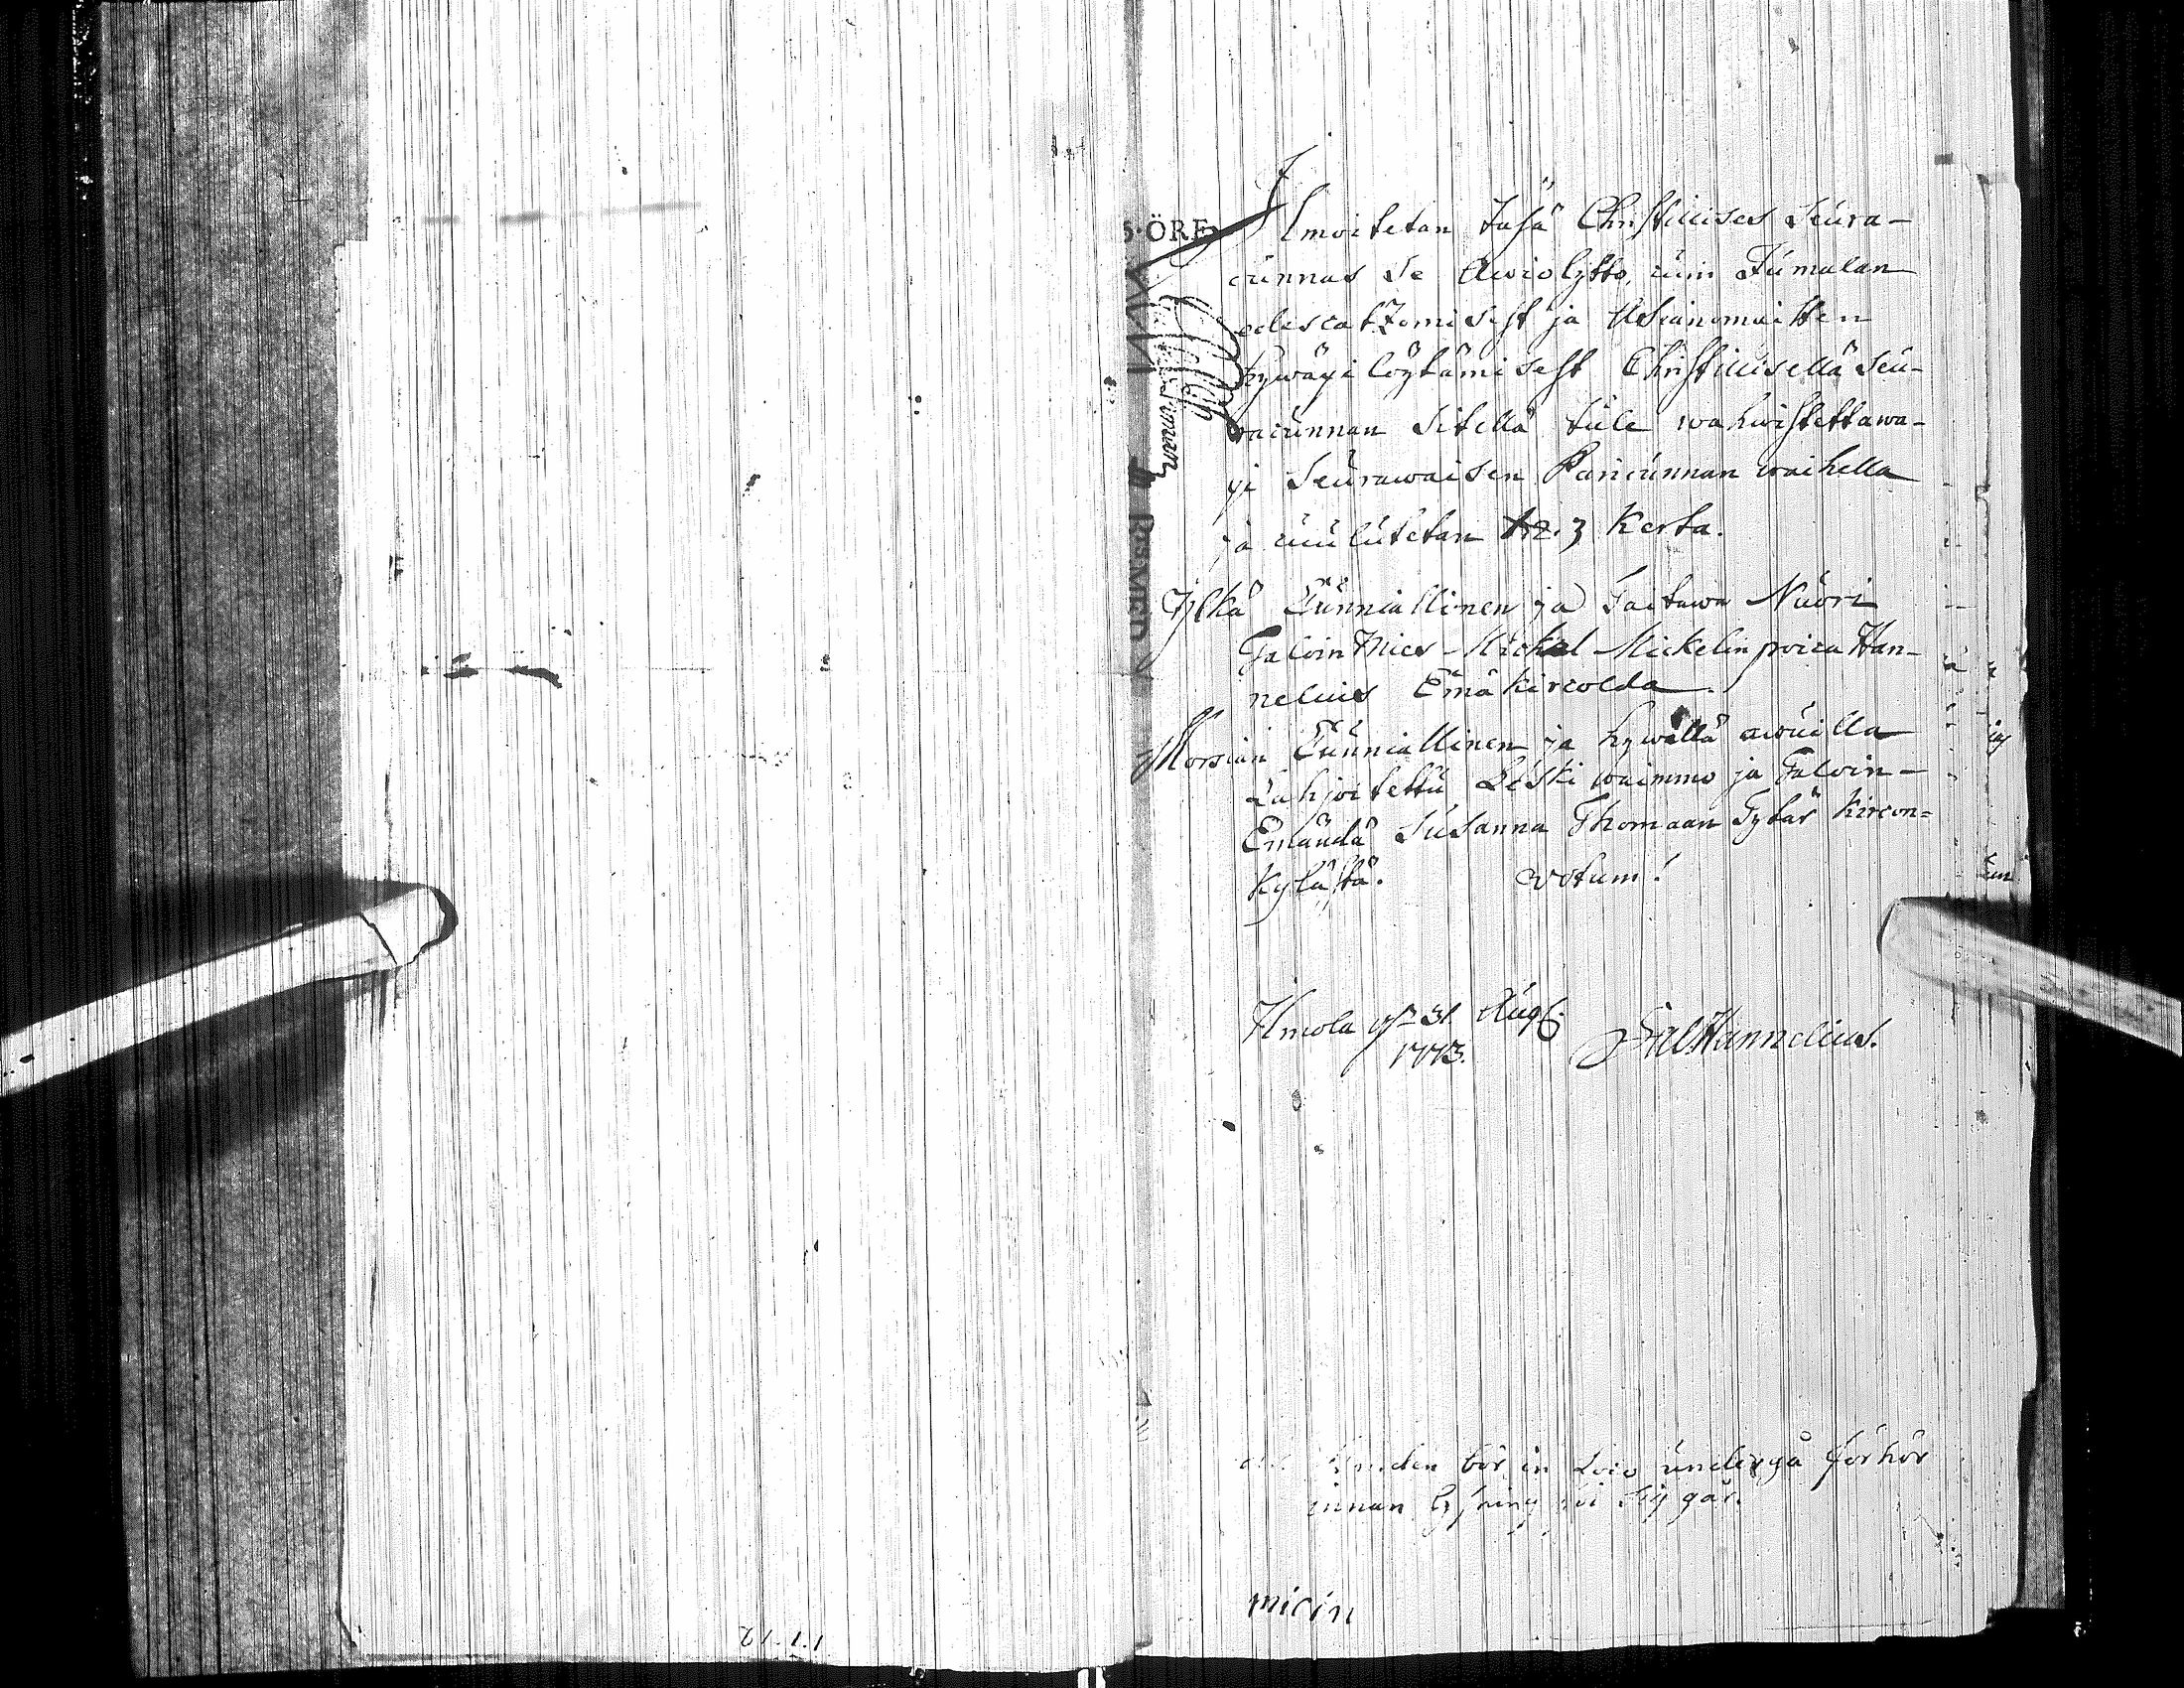 5·ÖRE
Ilmoitetan täsä Christillises Seura-
cunnas Se Awiolijtto, cuin Jumalan
edescatzomisest ja Asianomaitten
hywäxi löytämisest Christillisellä Seu-
racunnan Sitellä tule wahwistettawa-
xi Seurawaisen Paricunnan waihella
ja cuulutetan 1. 2. 3 Kerta.
Ylkä Cunniallinen ja Taitawa Nuori
Taloin Mies Mickel Mickelin poica Han-
nelius Emäkircolda.
Morsian Cunniallinen ja hywällä awuilla
Lahjoitettu Leski waimmo ja Taloin-
Emändä Susanna Thomaan Tytär Kircon=
Kylästä. votum!
Ilmola 31 Aug.
1773. Hannelius.
bör in Loco undergå förhör
innan Lysning
micin